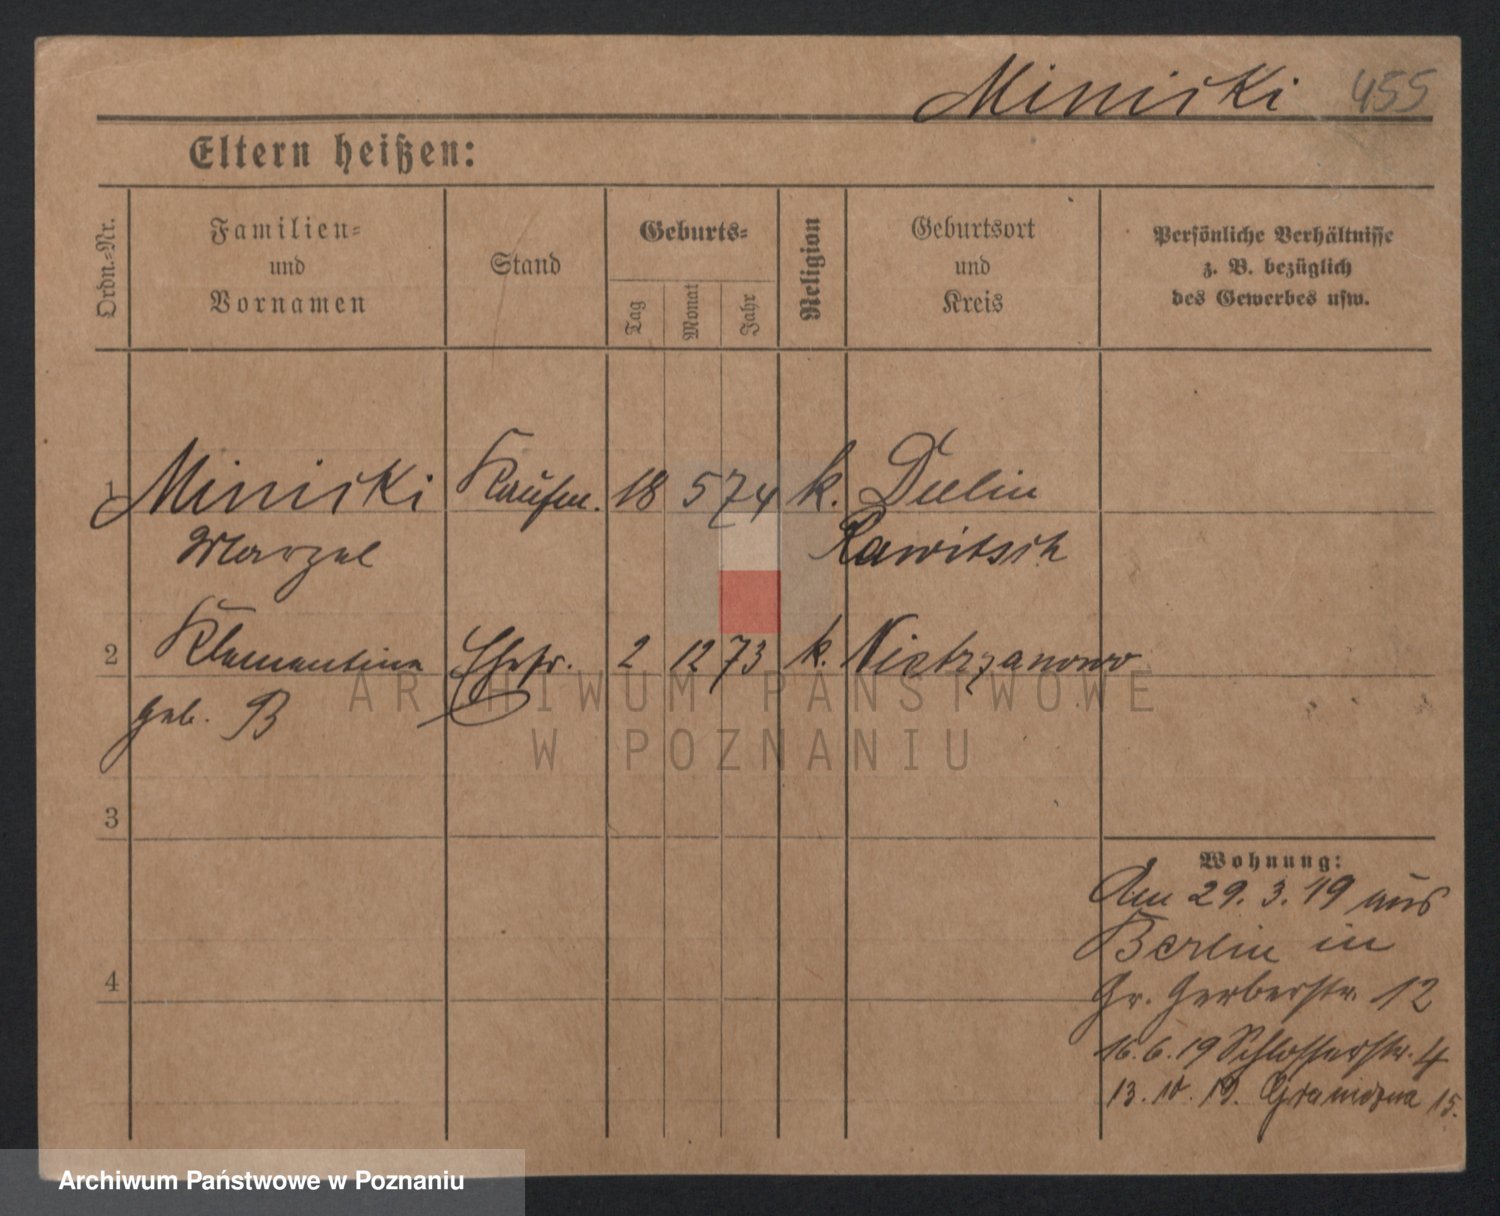 Miniski 455
Eltern heißen:
Ordn.-Nr.
Familien-
und
Vornamen
Stand
Geburts-
Tag
Monat
Jahr
Religion
Geburtsort
und
Kreis
Persönliche Verhältnisse
z. B. bezüglich
des Gewerbes usw.
1 Miniski Kaufm. 18 5 74 k. Dulin
Marzel Rawitsch
2 Klementina Ehefr. 2 12 73 k. Nietrzanowo
geb. B
3
4
Wohnung:
Am 29.3.19 aus
Berlin in
Gr. Gerberstr. 12
16.6.19 Schlosserstr. 4
13.10.19. Graniczna 15.
ARCHIWUM PAŃSTWOWE
W POZNANIU
Archiwum Państwowe w Poznaniu